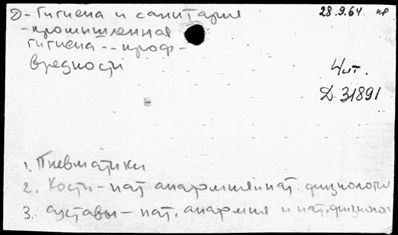 2)- Гигиена и санитария 28.9.64. кр
- промышленная
гигиена -- проф -
вредности
Чит.
Д 31891
1. Пневматики
2. Кости - пат. анатомия и пат. физиологи
3. суставы - пат. анатомия и пат. физиолог